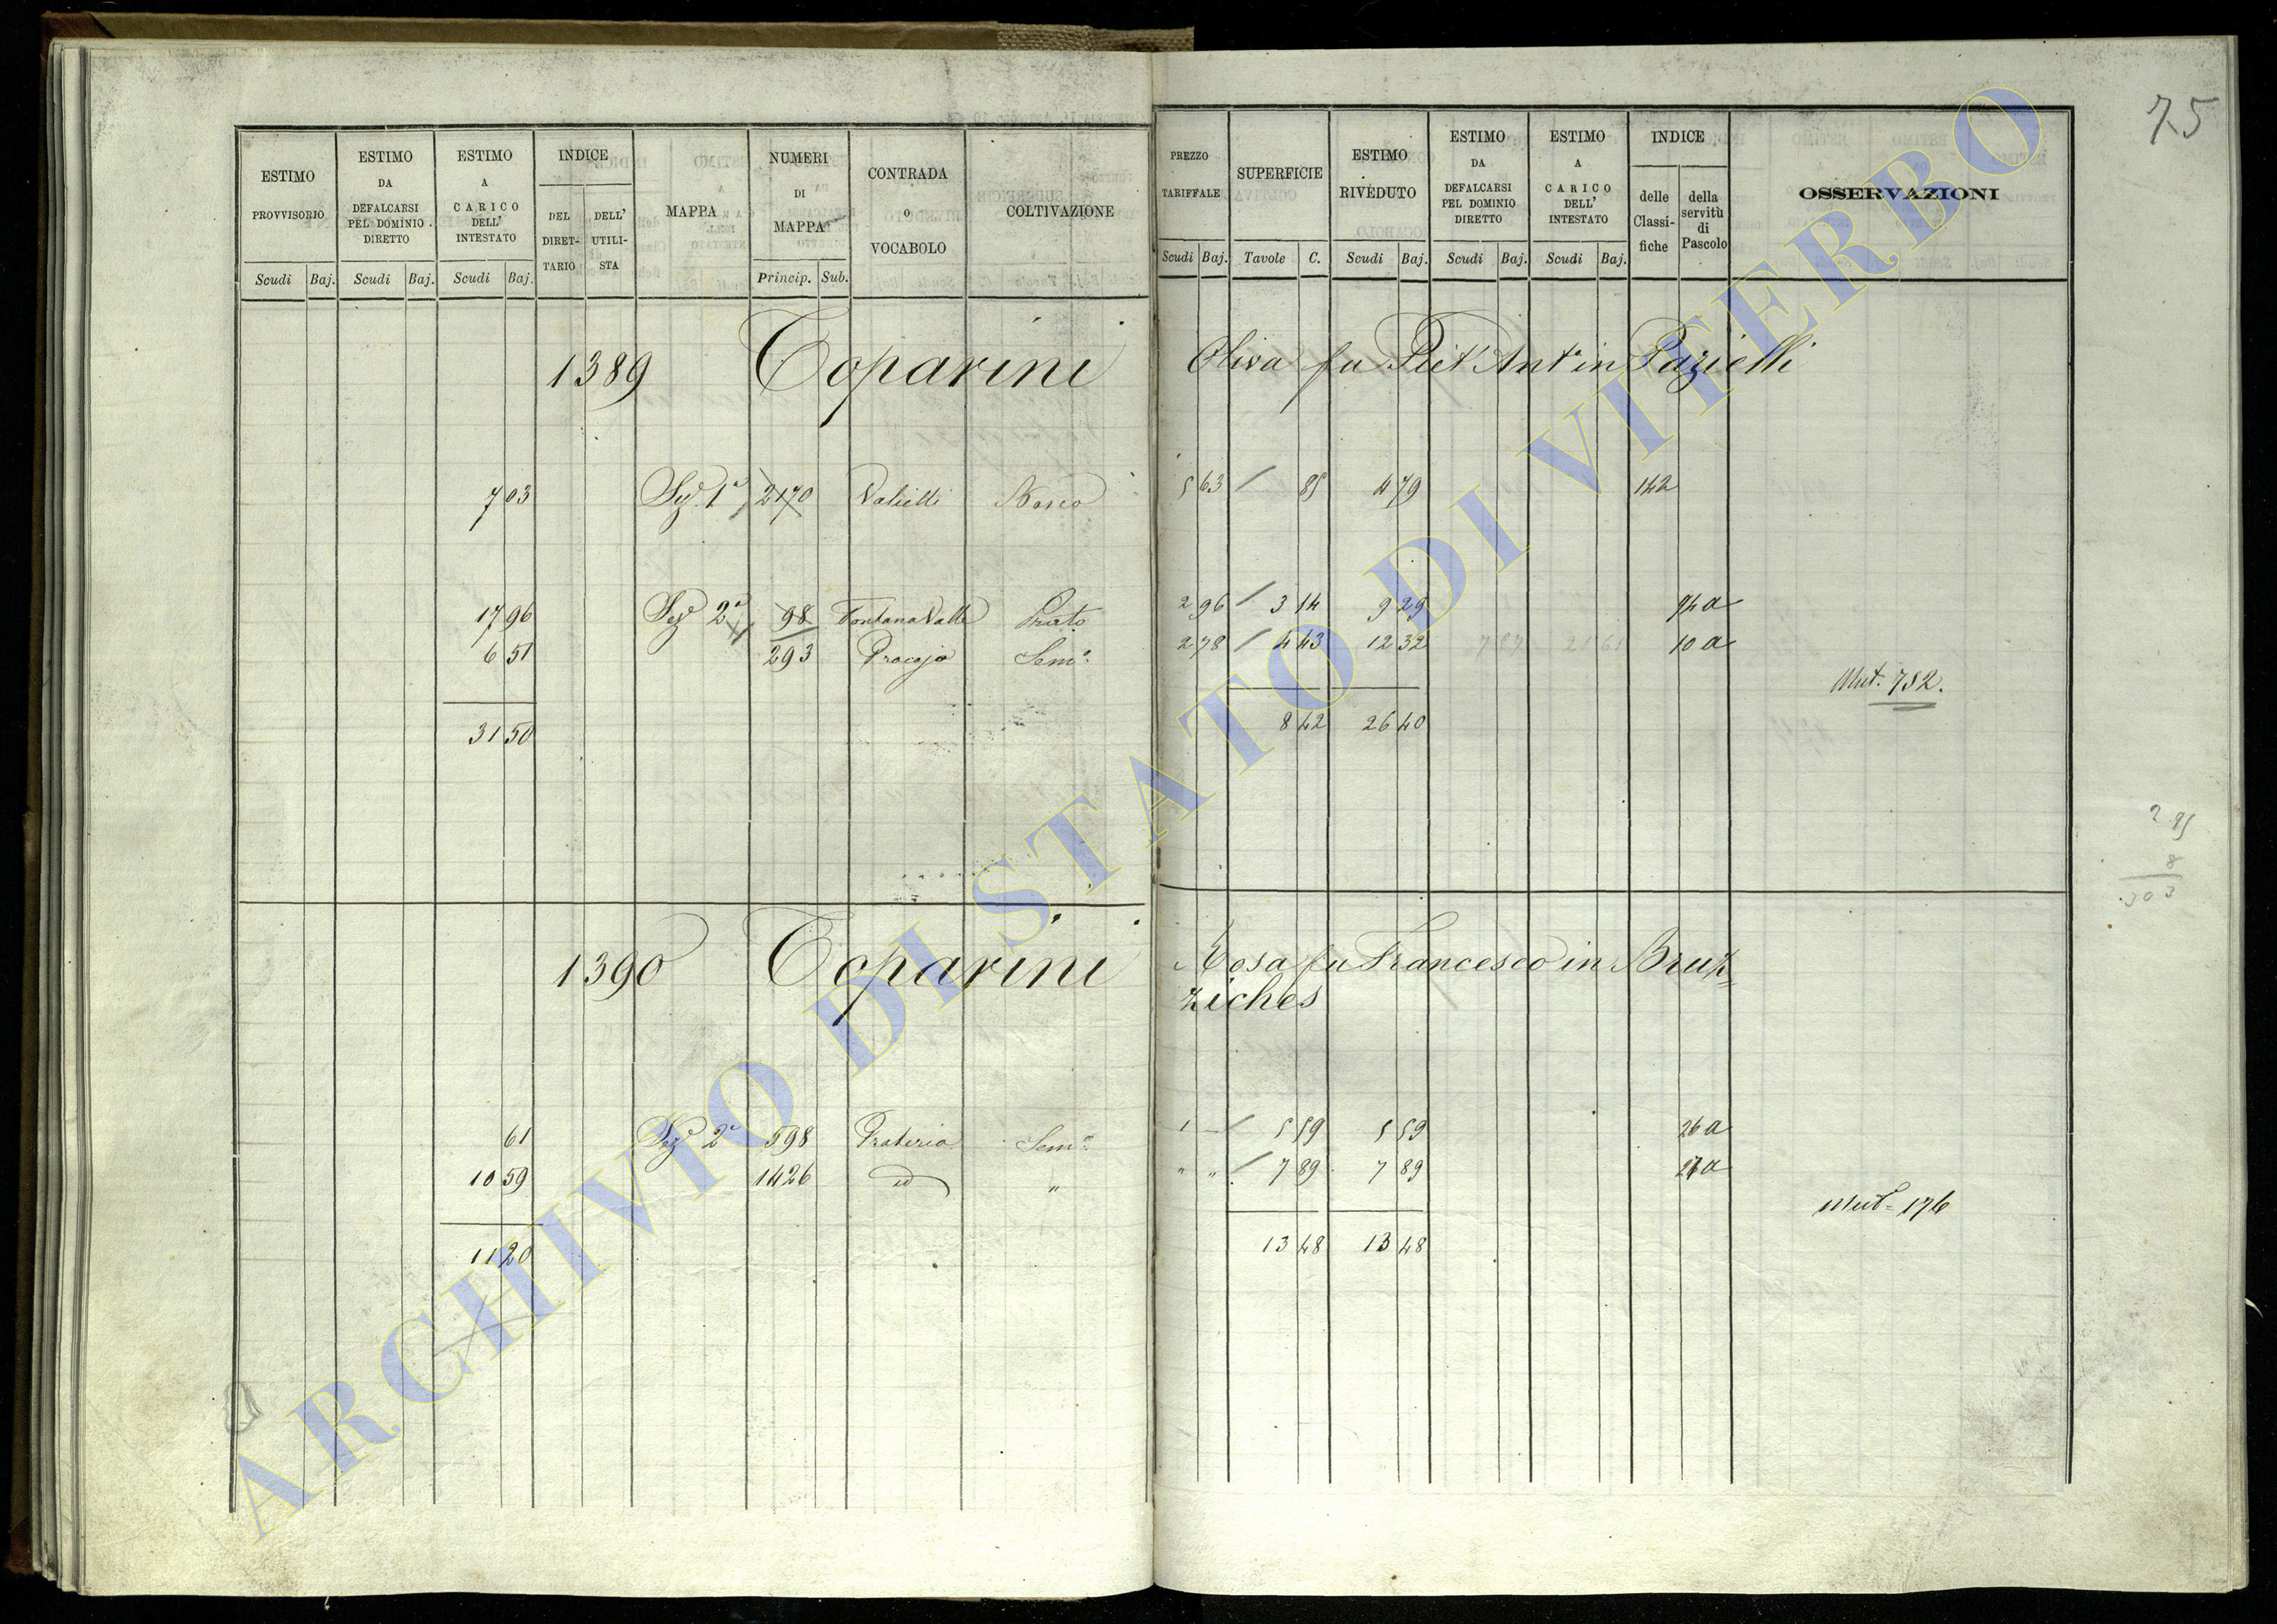 75
ESTIMO PROVVISORIO Scudi Baj.
ESTIMO DA DEFALCARSI PEL DOMINIO DIRETTO Scudi Baj.
ESTIMO A CARICO DELL' INTESTATO Scudi Baj.
INDICE DEL DIRETTARIO DELL' UTILISTA
MAPPA
NUMERI DI MAPPA Princip. Sub.
CONTRADA O VOCABOLO
COLTIVAZIONE
PREZZO TARIFFALE Scudi Baj.
SUPERFICIE Tavole C.
ESTIMO RIVEDUTO Scudi Baj.
ESTIMO DA DEFALCARSI PEL DOMINIO DIRETTO Scudi Baj.
ESTIMO A CARICO DELL' INTESTATO Scudi Baj.
INDICE delle Classifiche della servitù di Pascolo
OSSERVAZIONI
1389 Toparini Oliva fu Piet Ant in Pazielli
7 03 Sez. 1a 2170 Valielli Bosco 5 63 85 4 79 142
17 96 Sez 2a 98 Fontana Valle Prato 2 96 3 14 9 29 94 a
6 51 293 Procojo Semo 2 78 4 43 12 32 10 a
Mut. 752.
31 50 8 42 26 40
295
8
303
1390 Toparini Rosa fu Francesco in Bruz=
ziches
61 Seza 2a 598 Prateria Semo 1 - 5 59 5 59 26 a
10 59 1426 id " " " 7 89 7 89 27 a
Muta= 176
11 20 13 48 13 48
ARCHIVIO DI STATO DI VITERBO